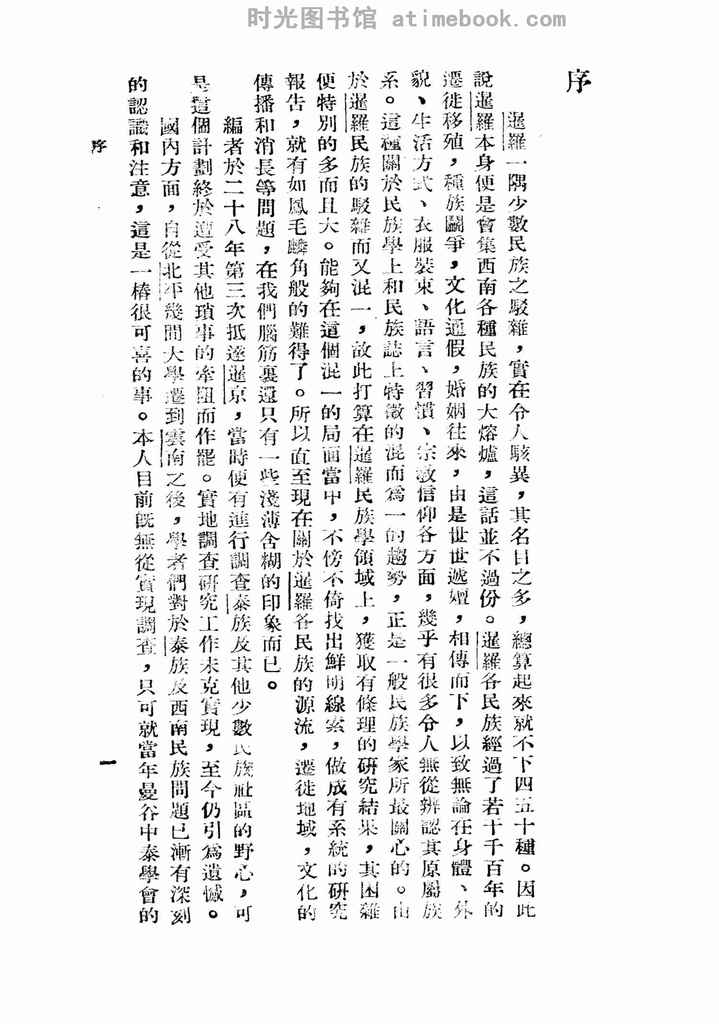 时光图书馆 atimebook.com
序
暹羅一隅少數民族之駁雜，實在令人駭異，其名目之多，總算起來就不下四五十種。因此
說暹羅本身便是會集西南各種民族的大熔爐，這話並不過份。暹羅各民族經過了若干千百年的
遷徙移殖，種族鬭爭，文化通假，婚姻往來，由是世世遞嬗，相傳而下，以致無論在身體、外
貌、生活方式、衣服裝束、語言、習慣、宗教信仰各方面，幾乎有很多令人無從辨認其原屬族
系。這種關於民族學上和民族誌上特徵的混而爲一的趨勢，正是一般民族學家所最關心的。由
於暹羅民族的駁雜而又混一，故此打算在暹羅民族學領域上，獲取有條理的研究結果，其困難
便特別的多而且大。能夠在這個混一的局面當中，不傍不倚找出鮮明線索，做成有系統的研究
報告，就有如鳳毛麟角般的難得了。所以直至現在關於暹羅各民族的源流，遷徙地域，文化的
傳播和消長等問題，在我們腦筋裏還只有一些淺薄含糊的印象而已。
編者於二十八年第三次抵達暹京，當時便有進行調查泰族及其他少數民族社區的野心，可
是這個計劃終於遭受其他瑣事的牽阻而作罷。實地調查研究工作未克實現，至今仍引爲遺憾。
國內方面，自從北平幾間大學遷到雲南之後，學者們對於泰族及西南民族問題已漸有深刻
的認識和注意，這是一樁很可喜的事。本人目前既無從實現調查，只可就當年曼谷中泰學會的
序
一